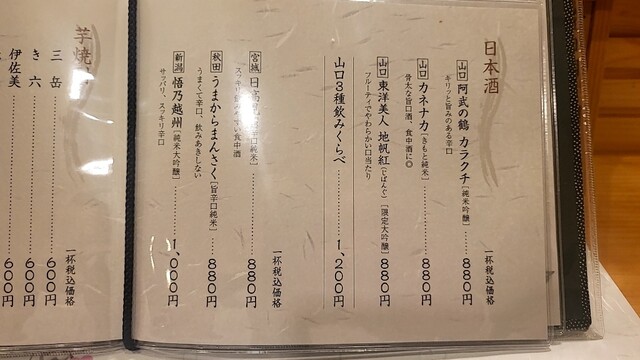 日本酒
一杯税込価格
山口 阿武の鶴 カラクチ[純米吟醸]……880円
キリッと旨みのある辛口
山口 カネナカ[きもと純米]……880円
骨太な旨口酒、食中酒に◎
山口 東洋美人 地帆紅(じぱんぐ)[限定大吟醸]880円
フルーティでやわらかい口当たり
山口3種飲みくらべ……1,200円
一杯税込価格
宮城 日高 辛口純米]……880円
スッキリ 食中酒
秋田 うまからまんさく[旨辛口純米]……880円
うまくて辛口、飲みあきしない
新潟 悟乃越州[純米大吟醸]……1,000円
サッパリ、スッキリ辛口
芋焼
一杯税込価格
三岳……600円
き六……600円
伊佐美……600円